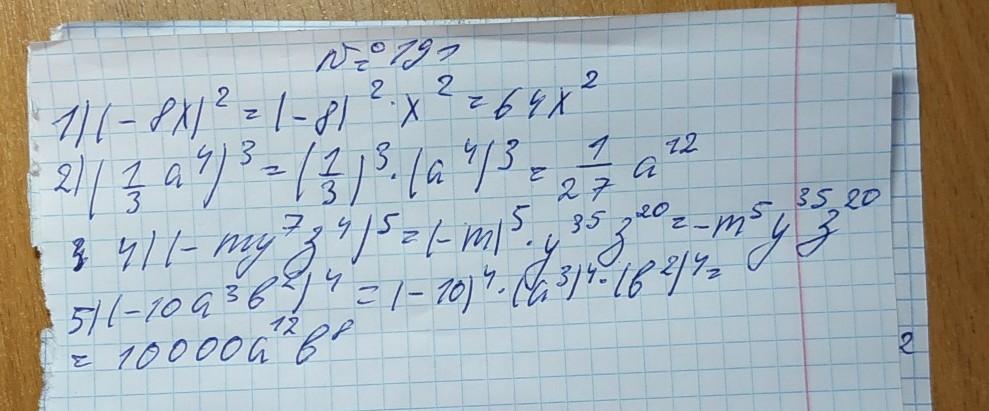 № 191
1) (-8x)² = (-8)² · x² = 64x²
2) (1/3 a⁴)³ = (1/3)³ · (a⁴)³ = 1/27 a¹²
4) (-my⁷z⁴)⁵ = (-m)⁵ · y³⁵z²⁰ = -m⁵y³⁵z²⁰
5) (-10a³b²)⁴ = (-10)⁴ · (a³)⁴ · (b²)⁴ =
= 10000a¹²b⁸
2